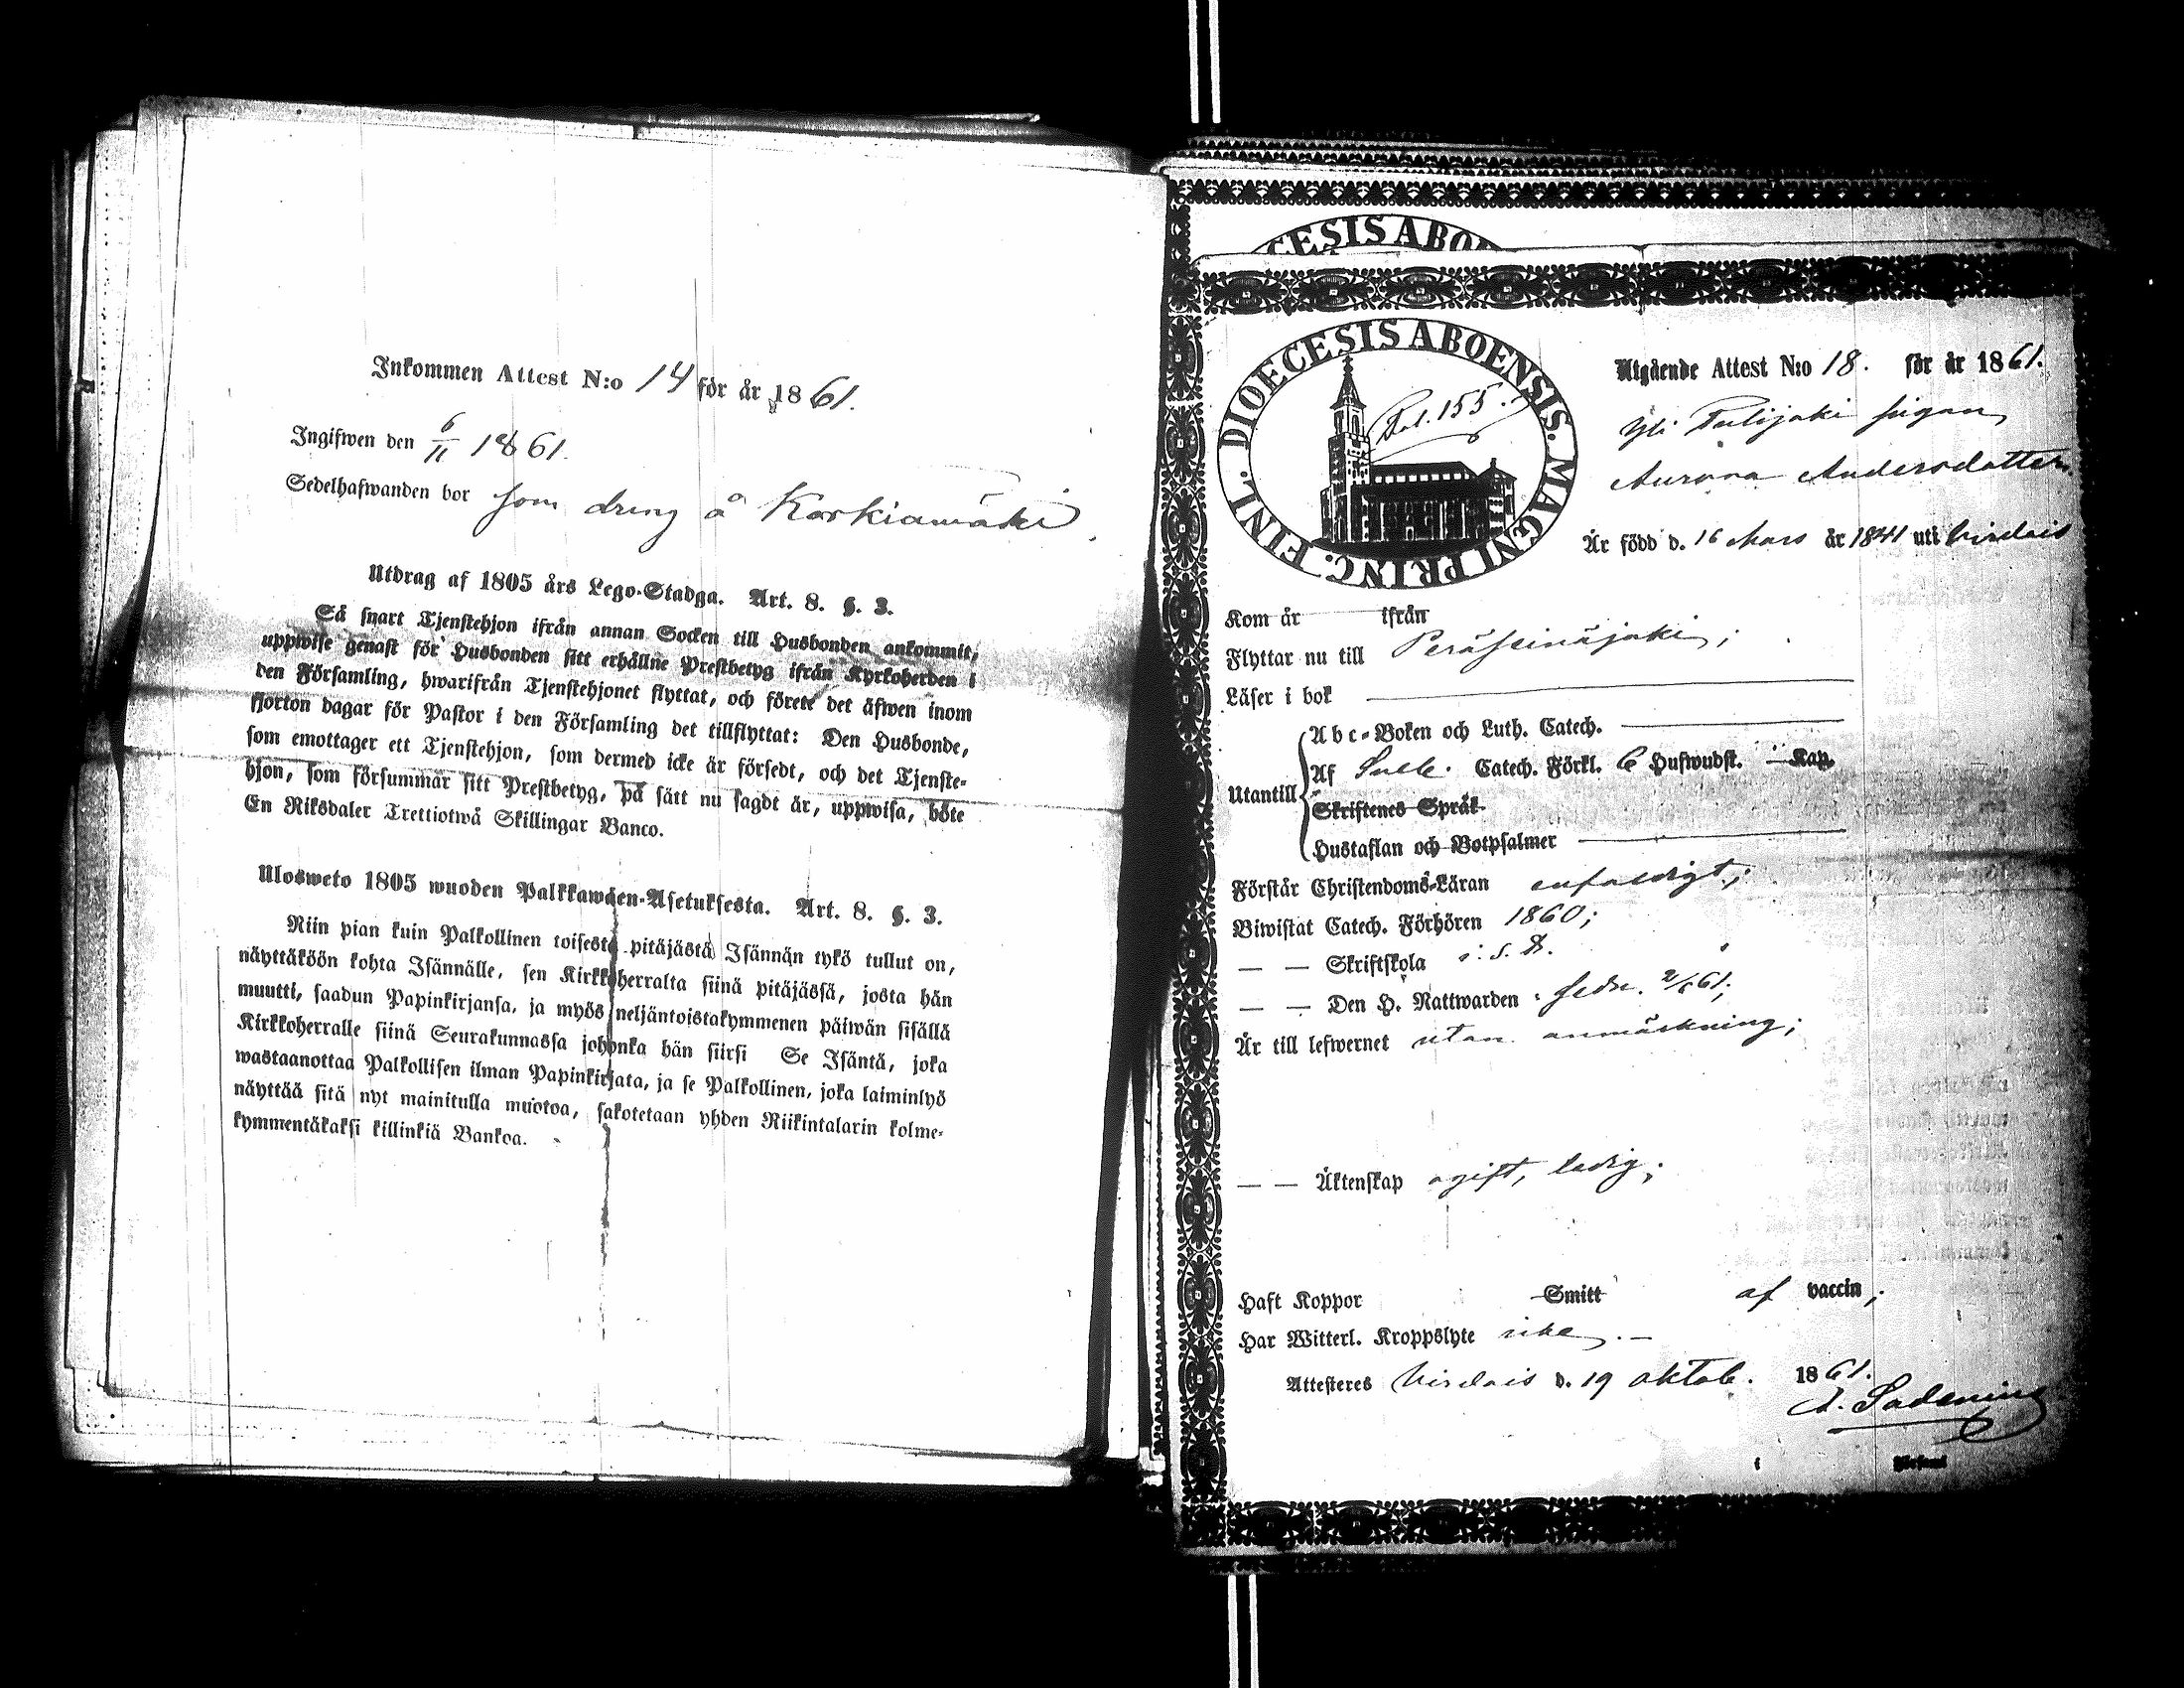 Inkommen Attest N:o 14 för år 1861.
Ingifwen den 6/11 1861.
Sedelhafwanden bor som dreng å Korkiamäki.
Utdrag af 1805 års Lego-Stadga. Art. 8. §. 3.
Så snart Tjenstehjon ifrån annan Socken till Husbonden ankommit,
uppwise genast för Husbonden sitt erhållne Prestbetyg ifrån Kyrkoherden i
den Församling, hwarifrån Tjenstehjonet flyttat, och förete det äfwen inom
fjorton dagar för Pastor i den Församling det tillflyttat: Den Husbonde,
som emottager ett Tjenstehjon, som dermed icke är försedt, och det Tjenste-
hjon, som försummar sitt Prestbetyg, på sätt nu sagdt är, uppwisa, böte
En Riksdaler Trettiotwå Skillingar Banco.
Ulosweto 1805 wuoden Palkkawäen-Asetuksesta. Art. 8. §. 3.
Niin pian kuin Palkollinen toisesta pitäjästä Isännän tykö tullut on,
näyttäköön kohta Isännälle, sen Kirkkoherralta siinä pitäjässä, josta hän
muutti, saadun Papinkirjansa, ja myös neljäntoistakymmenen päiwän sisällä
Kirkkoherralle siinä Seurakunnassa johonka hän siirsi Se Isäntä, joka
wastaanottaa Palkollisen ilman Papinkirjata, ja se Palkollinen, joka laiminlyö
näyttää sitä nyt mainitulla muotoa, sakotetaan yhden Riikintalarin kolme-
kymmentäkaksi killinkiä Bankoa.
CESIS ABO
DIOECESIS ABOENSIS. MAGNI PRINC. FINL.
Fol. 155.
Utgående Attest N:o 18. för år 1861.
Yli pigan
Aurora Andersdotter.
Är född d. 16 Mars år 1841 uti Virdois
Kom år ifrån
Flyttar nu till Peräseinäjoki;
Läser i bok
Utantill
Abc-Boken och Luth. Catech.
Af Catech. Förkl. 6 Hufwudst. Kap.
Skriftenes Språk.
Hustaflan och Botpsalmer
Förstår Christendoms-Läran enfaldigt;
Biwistat Catech. Förhören 1860;
— — Skriftskola
— — Den H. Nattwarden
Är till lefwernet utan anmärkning;
— — Äktenskap ogift, ledig;
Haft Koppor Smitt af vaccin;
Har Witterl. Kroppslyte icke. —
Attesteres Virdois d. 19 oktob. 1861.